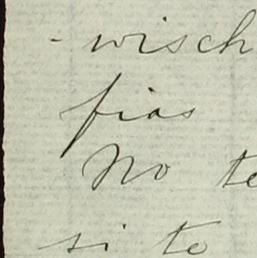 - wisch
fias
No te
si te